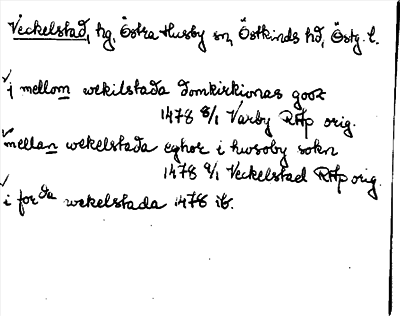 Veckelstad, hg, Östra Husby sn, Östkinds hd, Östg. l.
i mellom wekilstada domkirkionas gooz
1478 8/1 Varby RAp orig.
mellan wekelstada eghor i hwsoby sokn
1478 9/1 Veckelstad RAp orig.
i forda wekelstada 1478 ib.